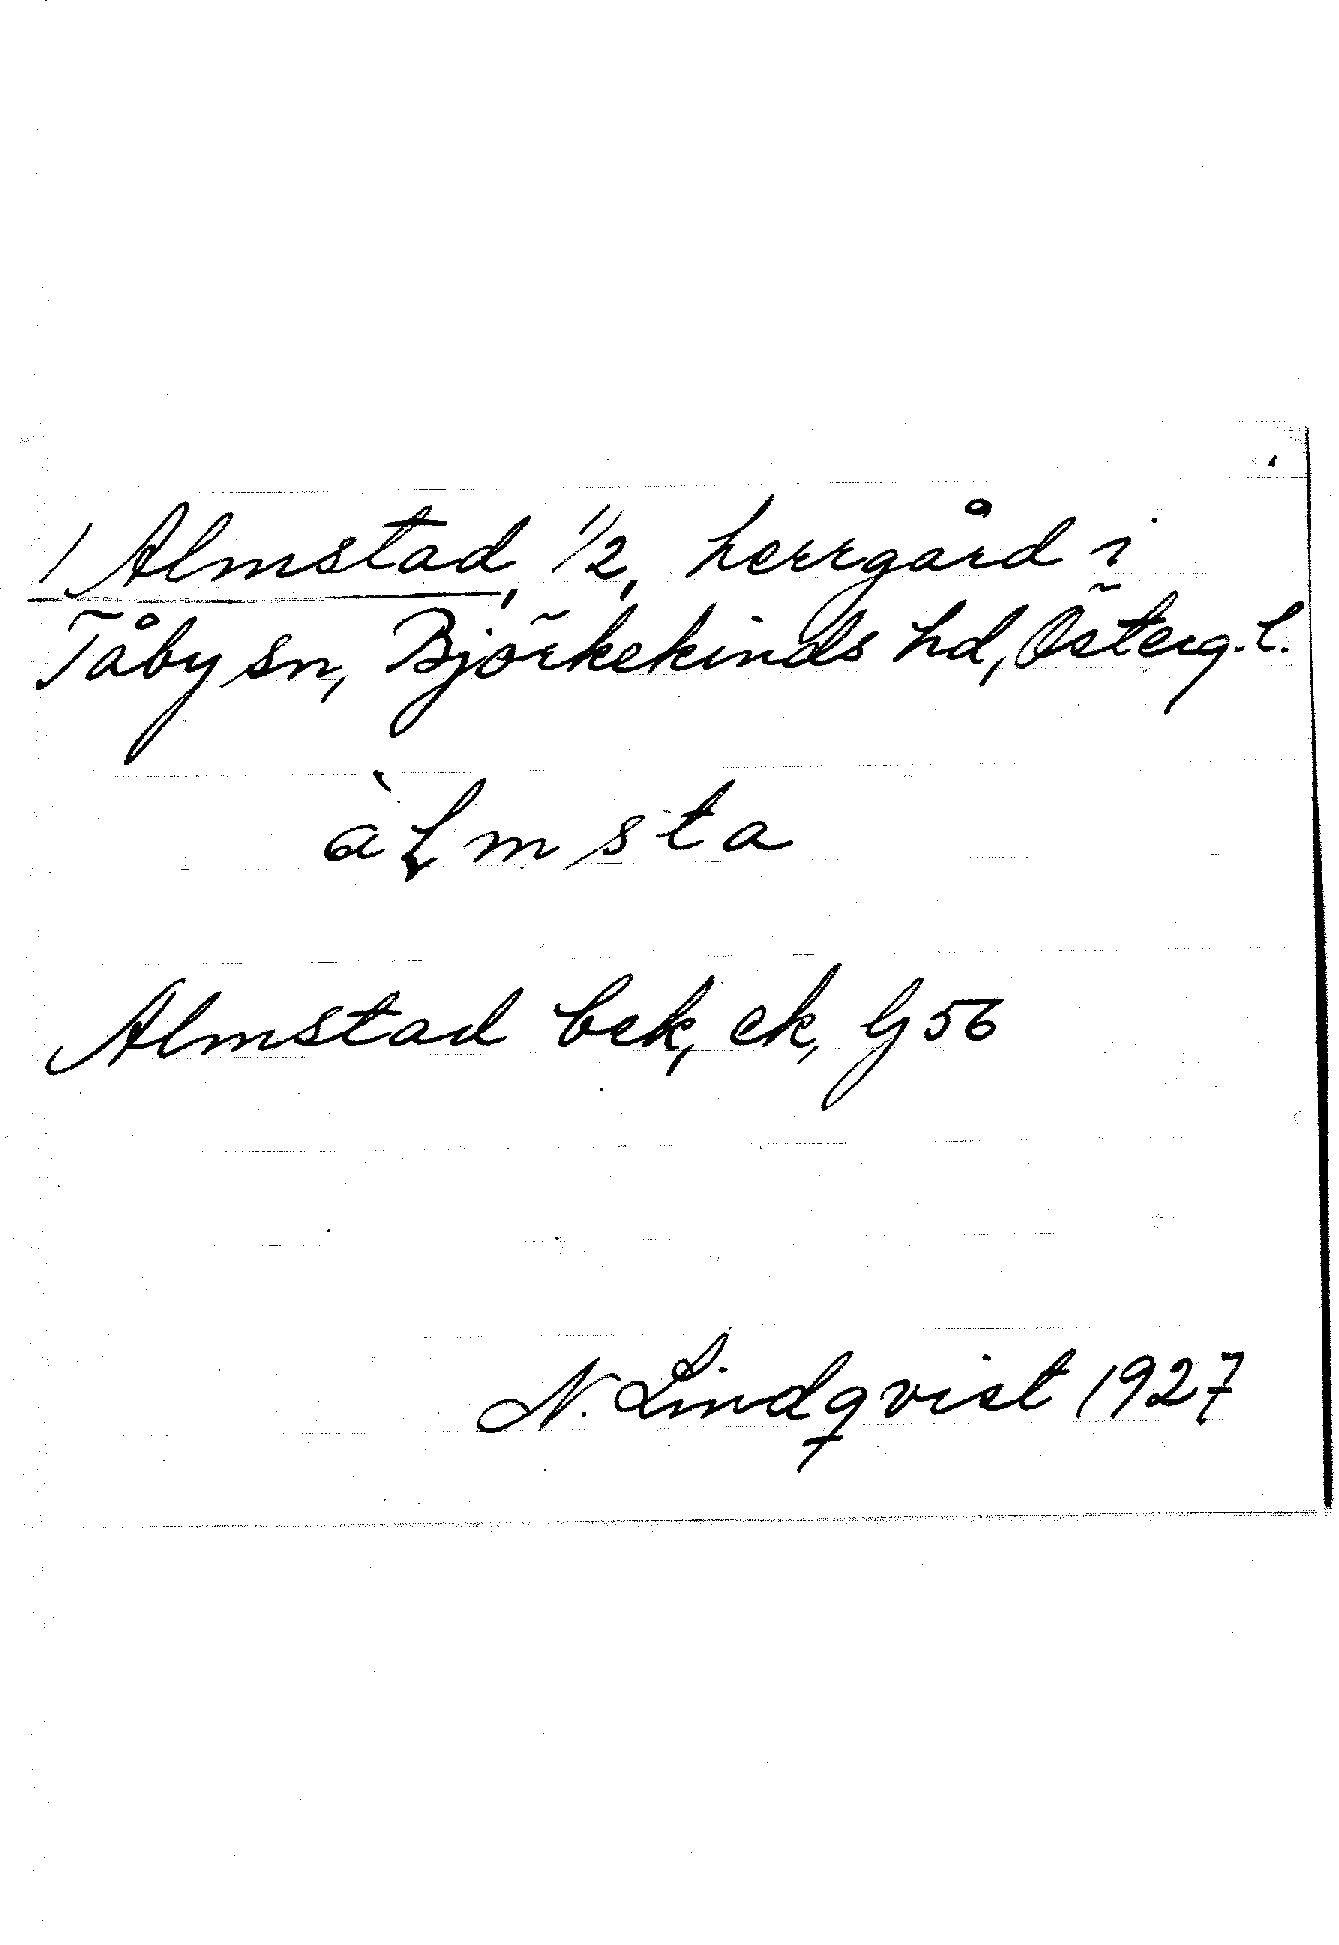 1 Almstad, 1/2, herrgård i
Tåby sn, Björkekinds hd, Österg. l.
àlmsta
Almstad bek, ek, Gj 56
N. Lindqvist 1927